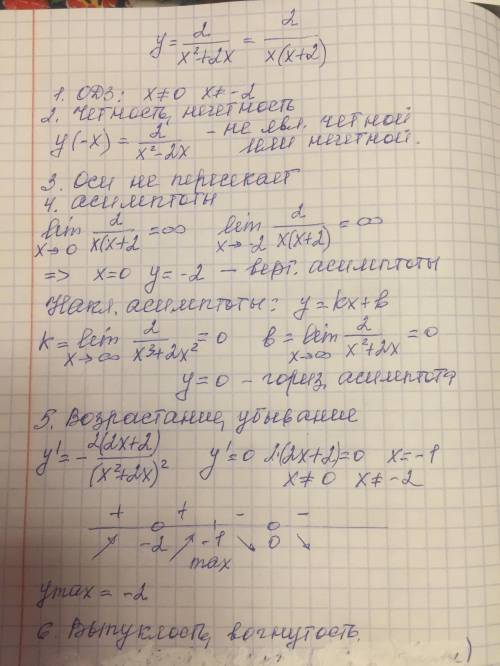 y = 2/(x²+2x) = 2/(x(x+2))
1. ОДЗ: x≠0 x≠-2
2. Четность, нечетность
y(-x) = 2/(x²-2x) - не явл. четной
или нечетной.
3. Оси не пересекает
4. Асимптоты
lim x→0 2/(x(x+2 = ∞ lim x→-2 2/(x(x+2) = ∞
=> x=0 y=-2 - верт. асимптоты
Накл. асимптоты: y=kx+b
k = lim x→∞ 2/(x³+2x²) = 0 b = lim x→∞ 2/(x²+2x) = 0
y=0 - гориз. асимптота
5. Возрастание, убывание
y' = -2(2x+2)/(x²+2x)² y'=0 2·(2x+2)=0 x=-1
x≠0 x≠-2
+ + - -
↗ -2 ↗ -1 ↘ 0 ↘
max
ymax = -2
6. Выпуклость, вогнутость.